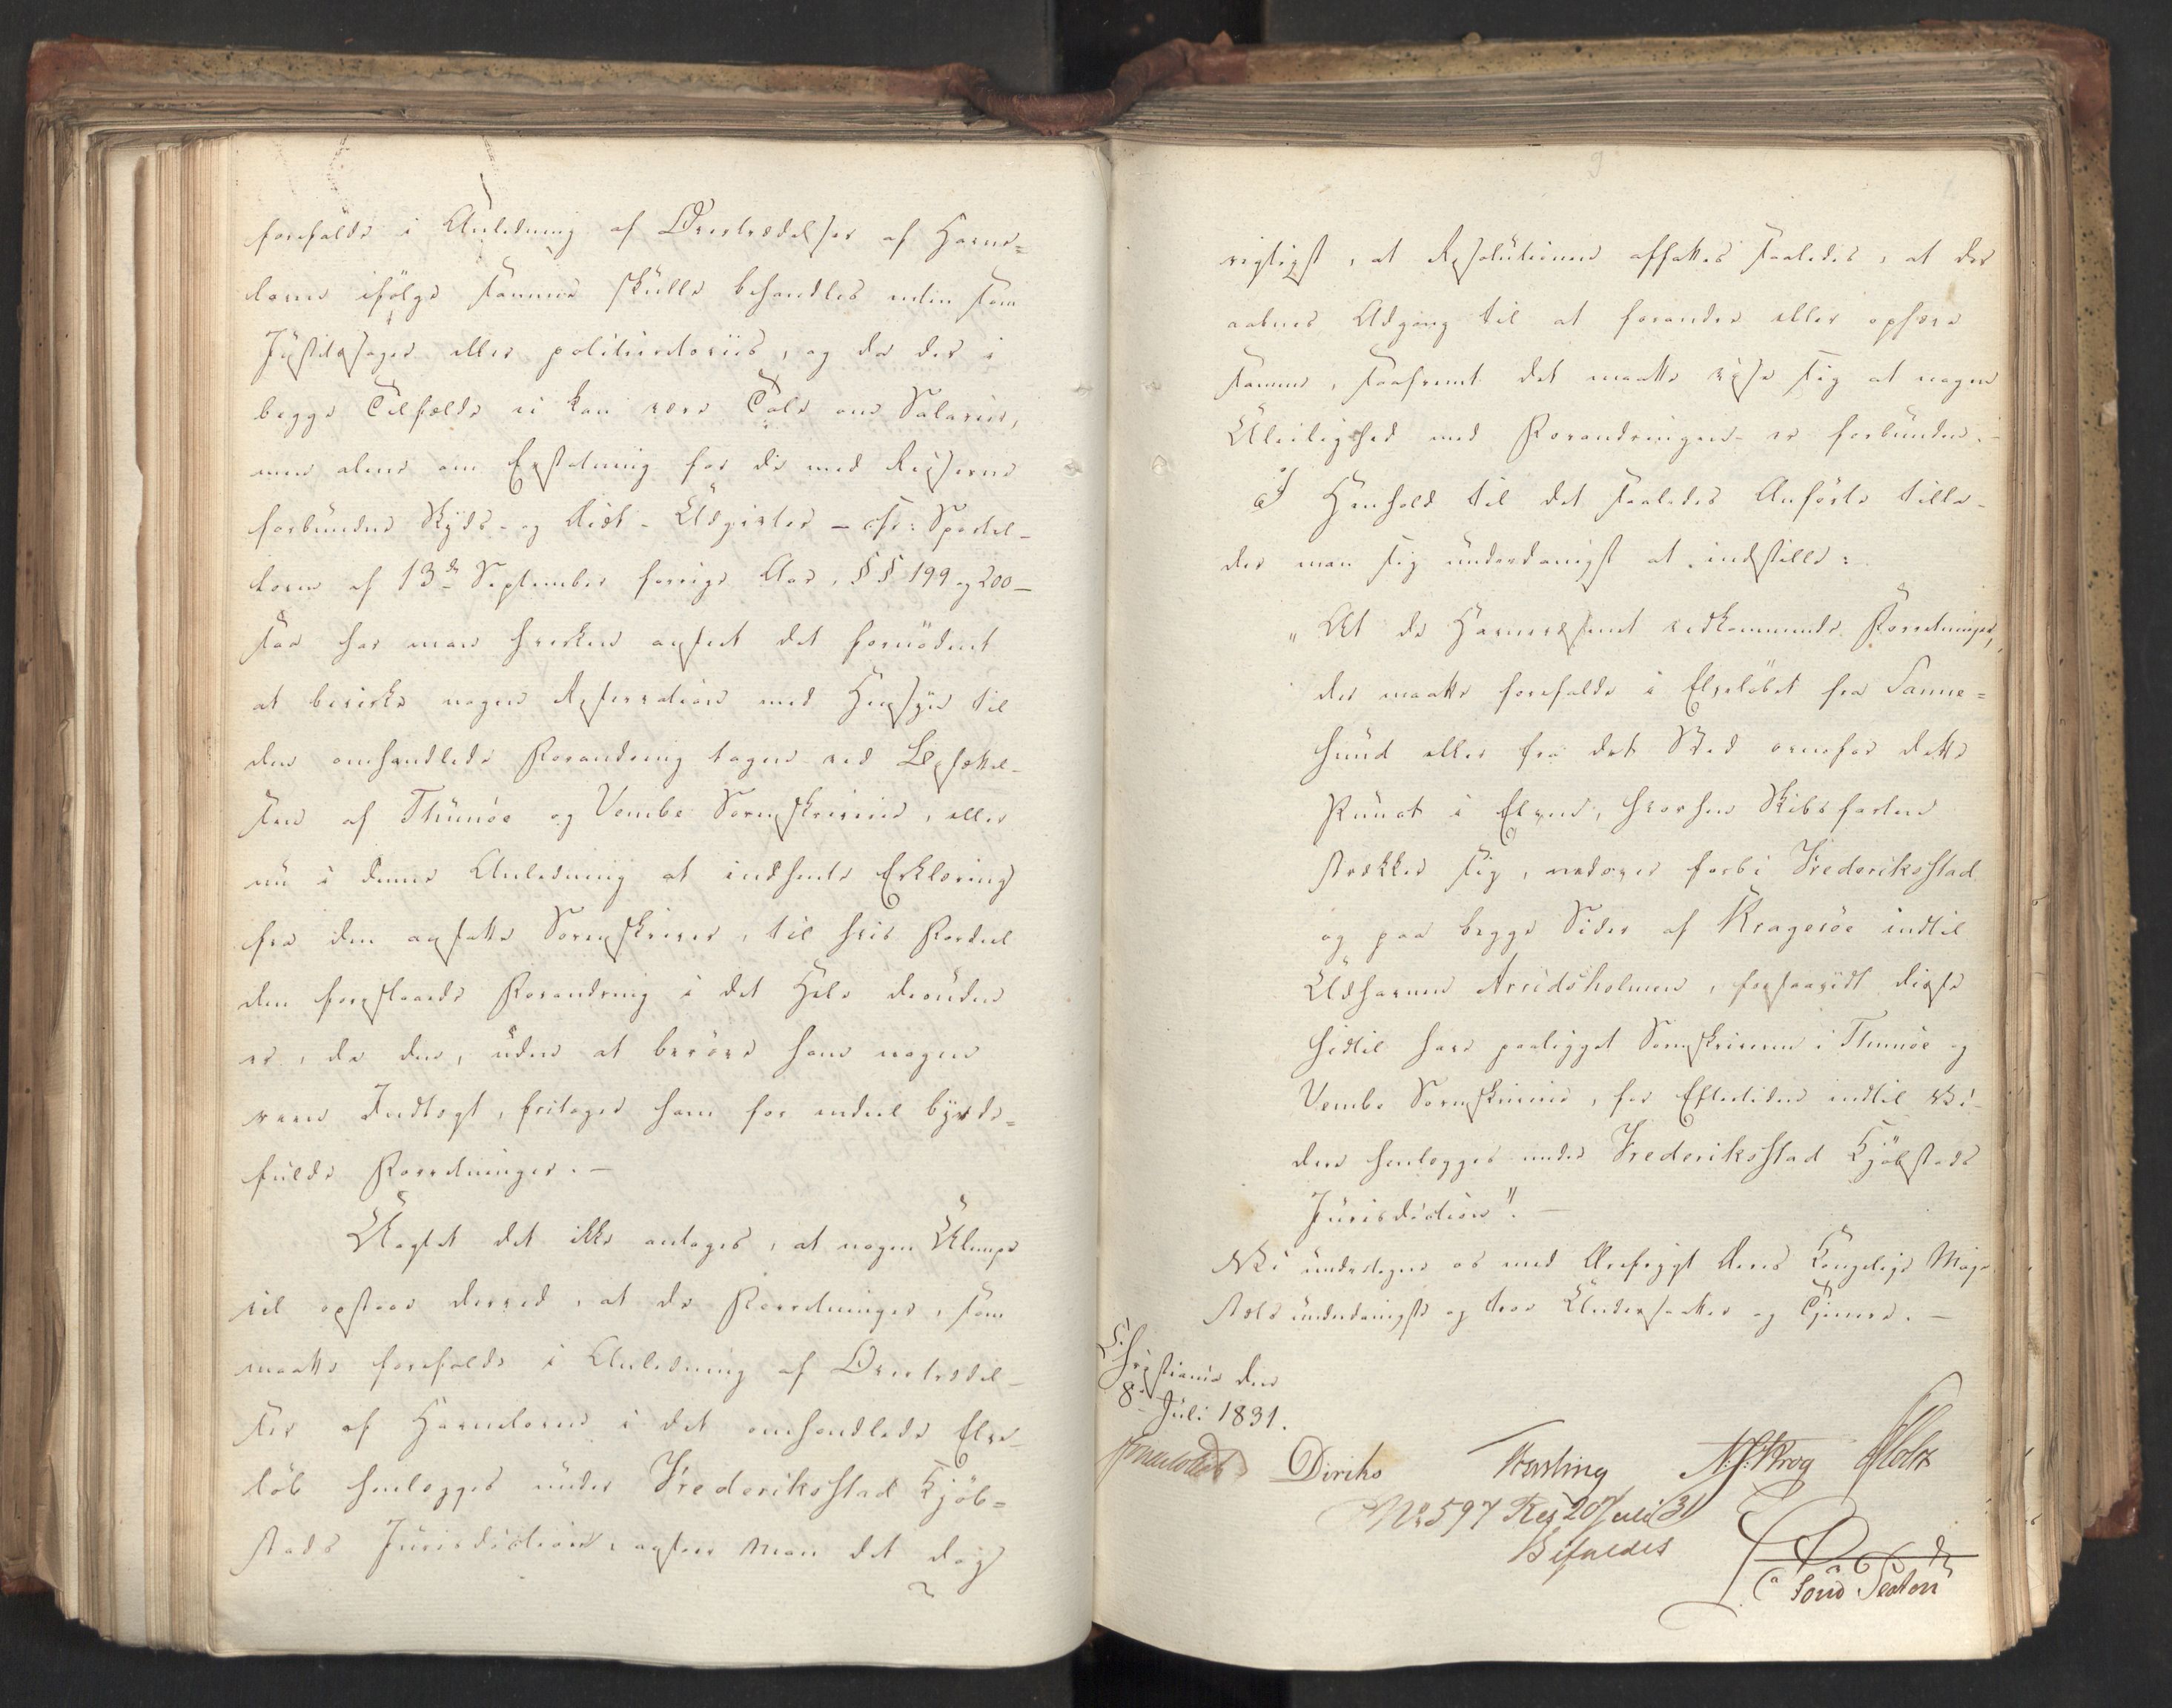 forefalde i Anledning af Overtrædelser af Havne=
loven ifølge samme skulle behandles enten som
Justitssager eller politieretsviis, og da der i
begge Tilfælde ei kan være Tale om Salarier,
men alene om Erstatning for de med Reiserne
forbundne Skyds- og Diæt-Udgivter – cfr: Sportel-
loven af 13de September forrige Aar, §§ 199 og 200 –
saa har man hverken anseet det fornødent
at bevirke nogen Reservation med Hensyn til
den omhandlede Forandring tagen ved Besættel-
sen af Thunöe og Vembe Sorenskriverie, eller
nu i denne Anledning at indhente Erklæring
fra den ansatte Sorenskriver, til hvis Fordeel
den foreslaaede Forandring i det Hele desuden
er, da den, uden at berøve ham nogen
reen Indtægt, fritager ham for endeel byrde=
fulde Forretninger. –
Uagtet det ikke antages, at nogen Ulempe
vil opstaae derved, at de Forretninger, som
maatte forefalde i Anledning af Overtrædel-
ser af Havneloven i det omhandlede Elve-
løb henlægges under Frederiksstad Kjøb=
stads Jurisdiction, anseer man det dog
rigtigst, at Resolutionen affattes saaledes, at der
aabnes Adgang til at forandre eller ophæve
samme, saafremt det maatte vise sig at nogen
Uleilighed med Forandringen er forbunden. –
I Henhold til det saaledes Anførte tilla-
der man sig underdanigst at indstille:
„At de Havnevæsenet vedkommende Forretninger,
der maatte forefalde i Elveløbet fra Sanne=
sund eller fra det Sted ovenfor dette
Punct i Elven, hvorhen Skibsfarten
strækker sig, nedover forbi Frederiksstad
og paa begge Sider af Kragerøe indtil
Udhavnen Arvidsholmen, forsaavidt disse
hidtil have paaligget Sorenskriveren i Thunöe og
Vembe Sorenskriverie, for Eftertiden indtil Vi-
dere henlægges under Frederiksstad Kjøbstads
Jurisdiction”. –
Vi undertegne os med Ærefrygt Deres Kongelige Maje-
stæts underdanigste og troe Undersaatter og Tjenere. –
Christiania den
8de Juli 1831.
Diriks
N. J. Krog
Holst
No 597 Res 20 Juli 31
Bifaldes